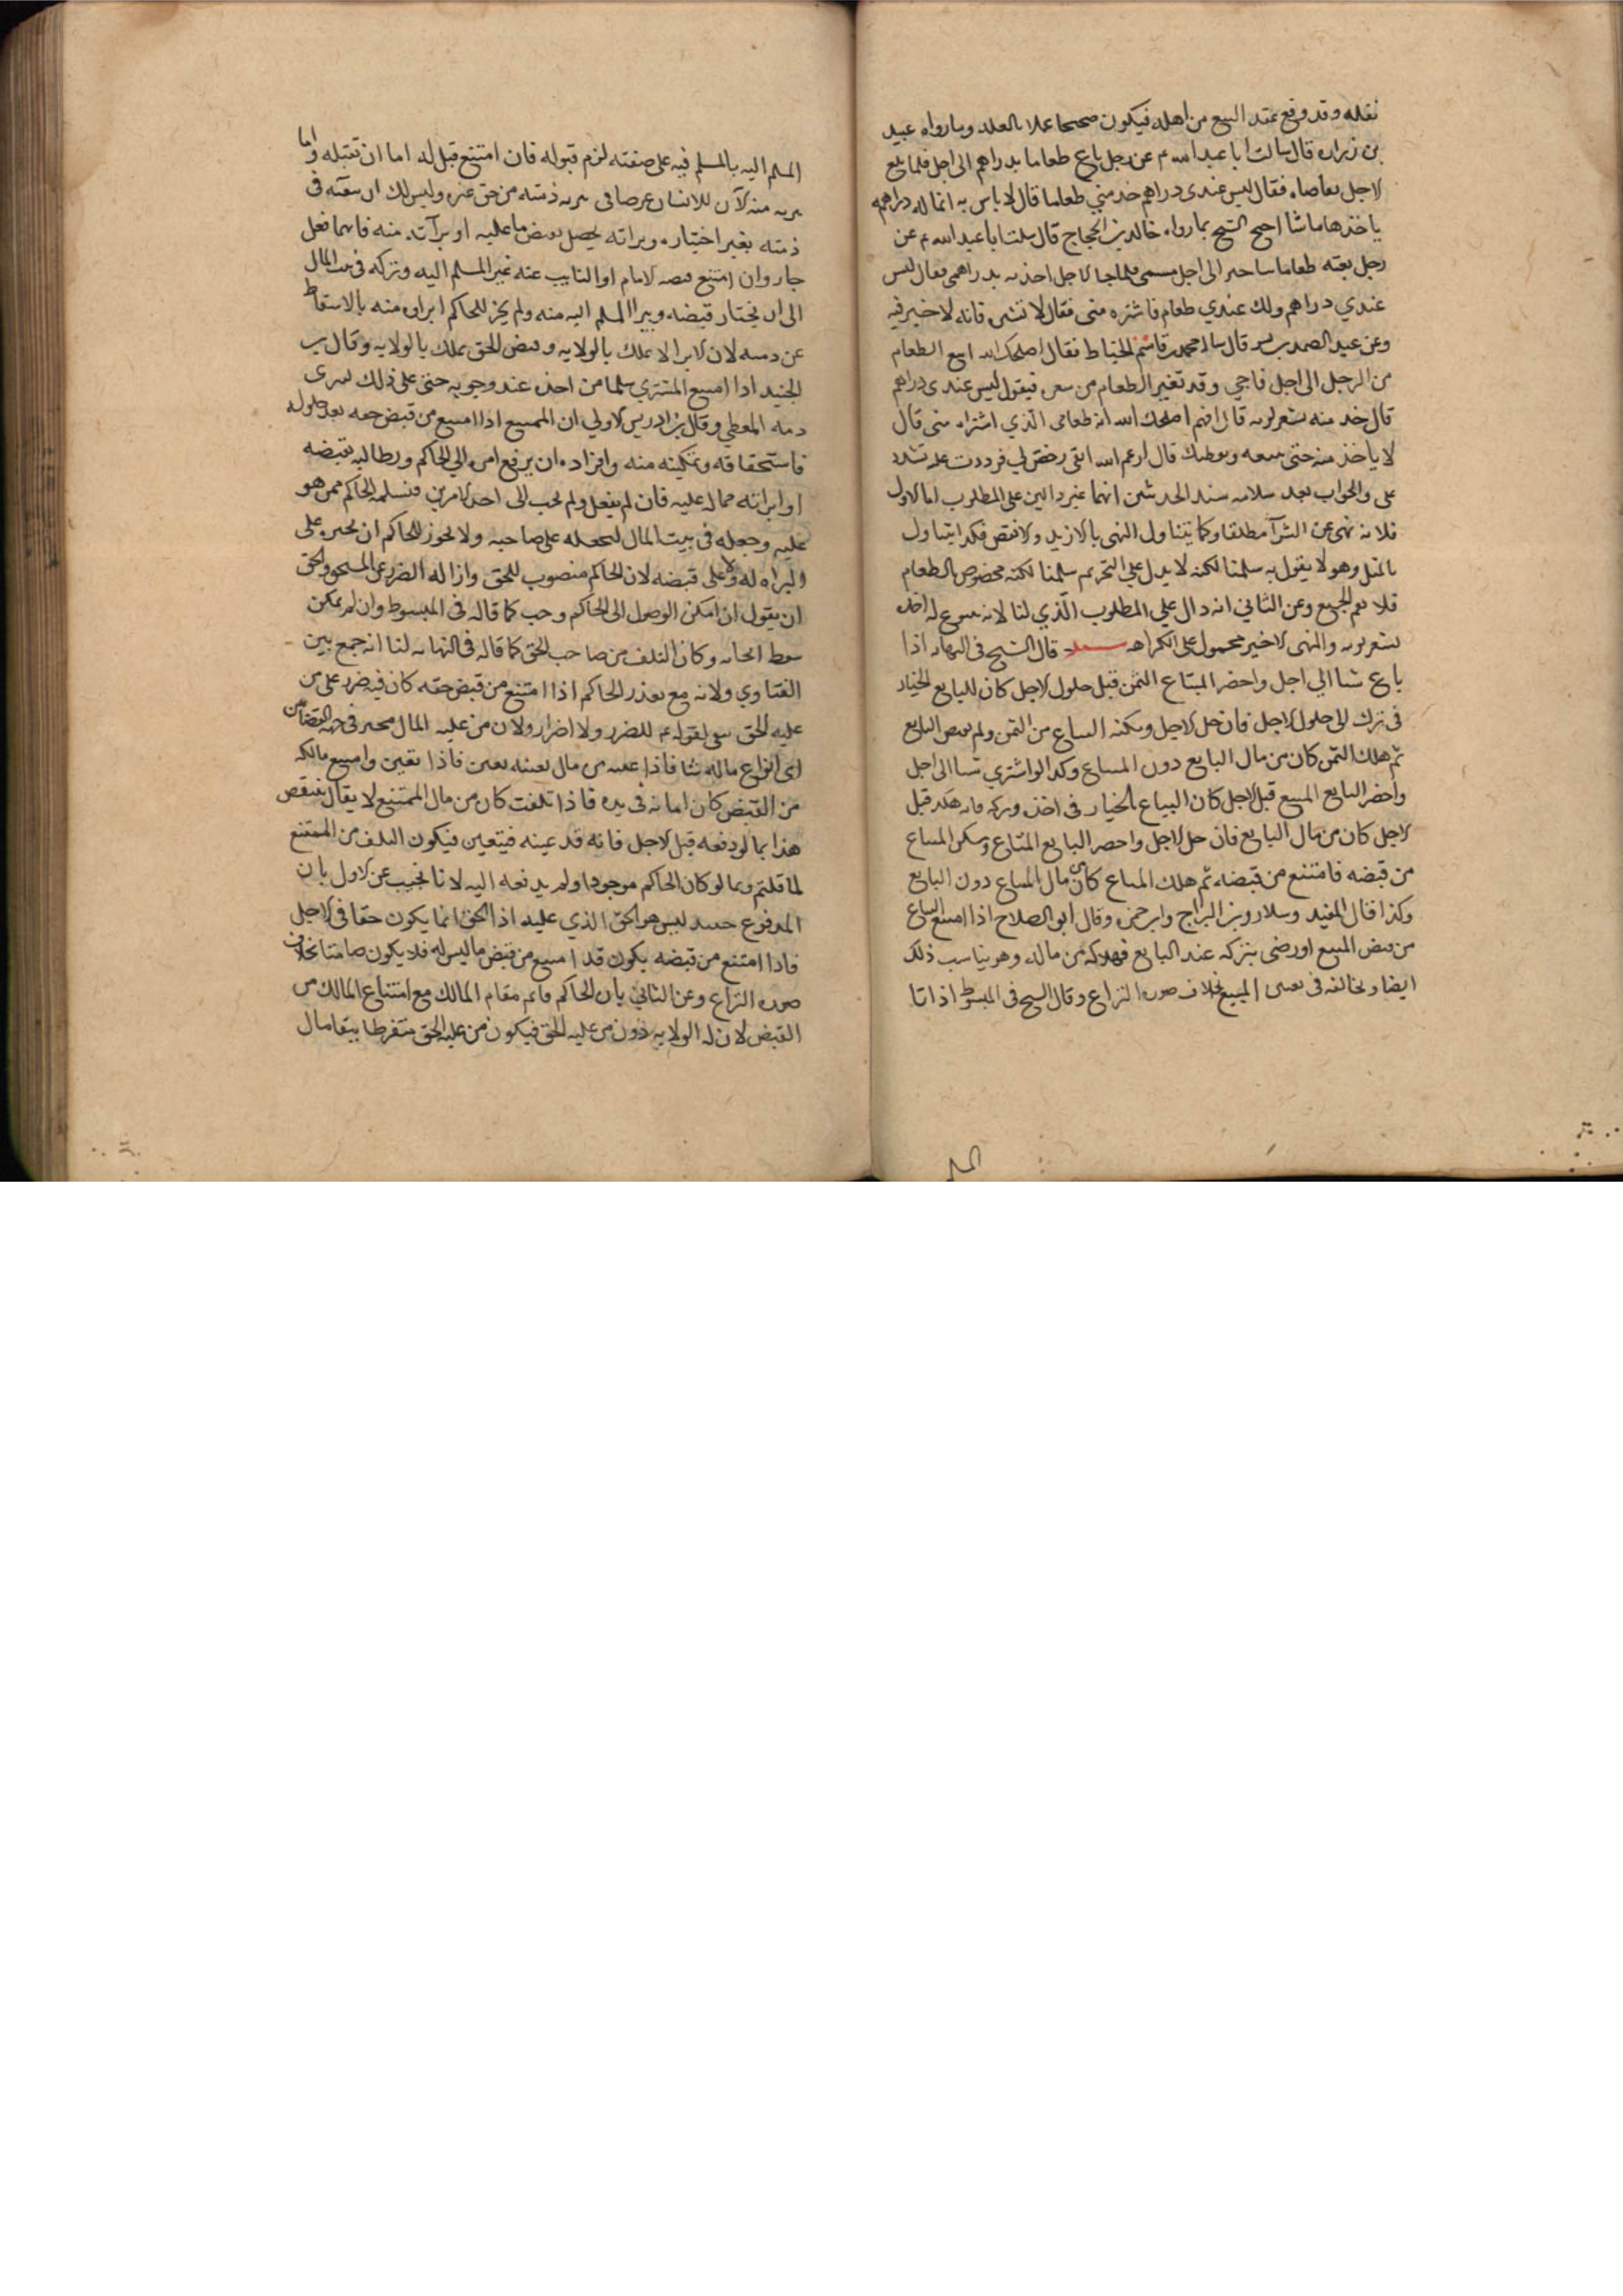 نقله وقد وقع عقد البيع من اهله فيكون صحيحا عملا بالعقد وما رواه عبيد
بن زراره قال سالت ابا عبد الله ع عن رجل باع طعاما بدراهم الى اجل فلما بلغ
الاجل تقاضاه فقال ليس عندى دراهم خذ مني طعاما قال لا باس به انما له دراهمه
ياخذ بها ما شا احتج الشيخ بما رواه خالد بن الحجاج قال سالت ابا عبد الله ع عن
رجل بعته طعاما بتاخير الى اجل مسمى فلما جا الاجل اخذته بدراهمى فقال ليس
عندي دراهم ولكن عندي طعام فاشتره منى فقال لا تشتره منه فانه لا خير فيه
وعن عبد الصمد بن بشير قال ساله محمد بن قاسم الحناط فقال اصلحك الله ابيع الطعام
من الرجل الى اجل فاجي وقد تغير الطعام من سعره فيقول ليس عندى دراهم
قال خذ منه بسعر يومه قال افهم اصلحك الله انه طعامى الذي اشتراه منى قال
لا ياخذ منه حتى يبيعه ويعطيك قال ارغم الله انفى رخص لي فرددت عليه فشدد
على والجواب بعد سلامه سند الحديثين انهما غير دالين على المطلوب اما الاول
فلانه نهى عن الشرآ مطلقا وكما يتناول النهى بالازيد والانقص فكذا يتناول
بالمثل وهو لا يقول به سلمنا لكنه لا يدل علي التحريم سلمنا لكنه مخصوص بالطعام
فلا يعم الجميع وعن الثاني انه دال علي المطلوب الذي لنا لانه سوغ له اخذه
بسعر يومه والنهى الاخير محمول على الكراهه مسئله قال الشيخ فى النهايه اذا
باع شيا الي اجل واحضر المبتاع الثمن قبل حلول الاجل كان للبايع الخيار
فى تركه الى حلول الاجل فان حل الاجل ومكنه المبتاع من الثمن ولم يقبض البايع
ثم هلك الثمن كان من مال البايع دون المبتاع وكذا لو اشتري شيا الى اجل
واحضر البايع المبيع قبل الاجل كان المبتاع بالخيار فى اخذه وتركه فان هلك قبل
الاجل كان من مال البايع فان حل الاجل واحضر البايع المتاع ومكن المبتاع
من قبضه فامتنع من قبضه ثم هلك المتاع كان من مال المبتاع دون البايع
وكذا قال المفيد وسلار وبن البراج وابن حمزه وقال ابو الصلاح اذا امتنع المبتاع
من قبض المبيع او رضى بتركه عند البايع فهلاكه من ماله وهو يناسب ذلك
ايضا ويخالفه فى تعيين المبيع بخلاف صوره النزاع وقال الشيخ فى المبسوط اذا اتا
المسلم
المسلم اليه بالمسلم فيه على صفته لزم قبوله فان امتنع قيل له اما ان تقبله واما
تبريه منه لان للانسان غرضا فى تبريه ذمته من حق غيره وليس لك ان تبقيه فى
ذمته بغير اختياره وبراته يحصل بقبض ما عليه او برآته منه فايهما فعل
جاز وان امتنع قبضه الامام او النايب عنه عن المسلم اليه وتركه فى بيت المال
الى ان يختار قبضه ويبرا المسلم اليه منه ولم يجز للحاكم ابراوه منه بالاسقاط
عن ذمته لان الابرا لا يملك بالولايه وقبض الحق يملك بالولايه وقال بن
الجنيد اذا امتنع المشتري سلما من اخذه عند وجوبه حتى على ذلك لتبرى
ذمه المعطي وقال بن ادريس الاولي ان الممتنع اذا امتنع من قبض حقه بعد حلوله
واستحقاقه وتمكينه منه وافراده ان يرفع امره الي الحاكم ويطالبه بقبضه
او ابراته مما له عليه فان لم يفعل ولم يجب الى احد الامرين فيسلمه الحاكم ممن هو
عليه وجعله فى بيت المال ليحفظه على صاحبه ولا يجوز للحاكم ان يجبره على
البراه له ولا على قبضه لان الحاكم منصوب للحق وازاله الضرر عن المسلمين والحق
ان يقول ان امكن الوصول الى الحاكم وجب كما قاله فى المبسوط وان لم يمكن
سقط ايجابه وكان التلف من صاحب الحق كما قاله فى النهايه لنا انه جمع بين
الفتاوي ولانه مع تعذر الحاكم اذا امتنع من قبض حقه كان فيه ضرر على من
عليه الحق منفى لقوله ع لا ضرر ولا اضرار ولان من عليه المال مخير فى جهه القضا من
اى انواع ماله شا فاذا عينه من مال بعينه تعين فاذا تعين وامتنع مالكه
من القبض كان امانه فى يده فاذا تلفت كان من مال الممتنع لا يقال ينتقض
هذا بما لو دفعه قبل الاجل فانه قد عينه فيتعين فيكون التلف من الممتنع
لما قلتم وبما لو كان الحاكم موجودا ولم يدفعه اليه لانا نجيب عن الاول بان
المدفوع حينئذ ليس هو الحق الذي عليه اذ الحق انما يكون حقا فى الاجل
فاذا امتنع من قبضه يكون قد امتنع من قبض ما ليس له فلا يكون ضامنا بخلاف
صوره النزاع وعن الثاني بان الحاكم قايم مقام المالك مع امتناع المالك من
القبض لان له الولايه دون من عليه الحق فيكون من عليه الحق مفرطا ببقا مال